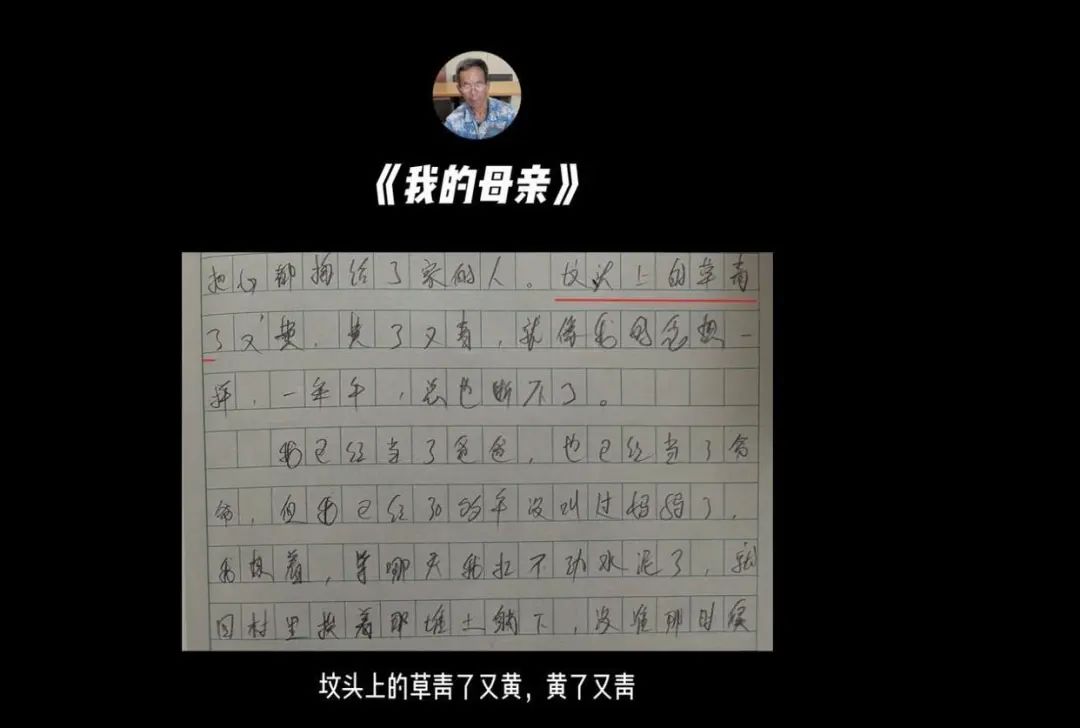 《我的母亲》
把心都掏给了家的人。坟头上的草青
了又黄，黄了又青，就像我的思想一
样，一年年，总也断不了。
我已经当了爸爸，也已经当了爷
爷，但我已经30多年没叫过妈妈了，
我想着，等哪天我扛不动水泥了，就
回村里挨着那堆土躺下，没准那时候
坟头上的草青了又黄，黄了又青